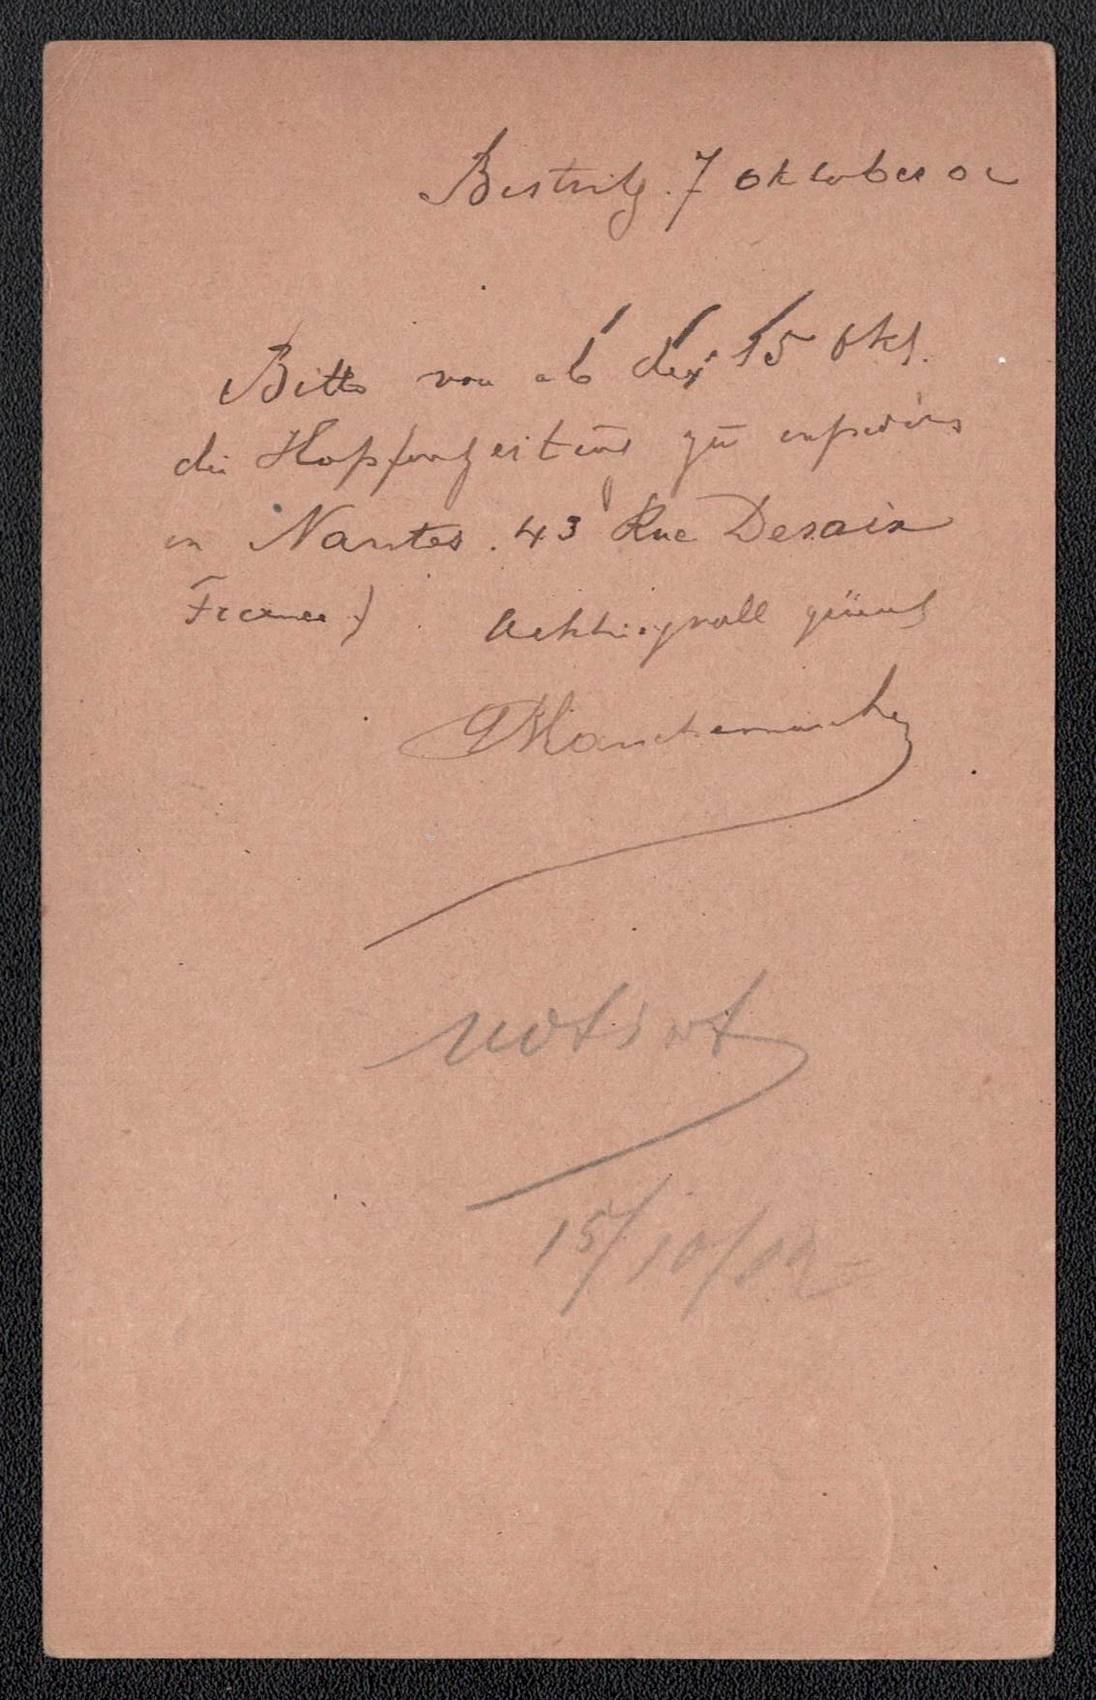 Bistritz. 7 oktober 02
Bitte von ab den 15 Okt.
die Hopfenzeitung zu
in Nantes. 43 Rue Desaix
France) Achtungsvoll
notirt
15/10/02